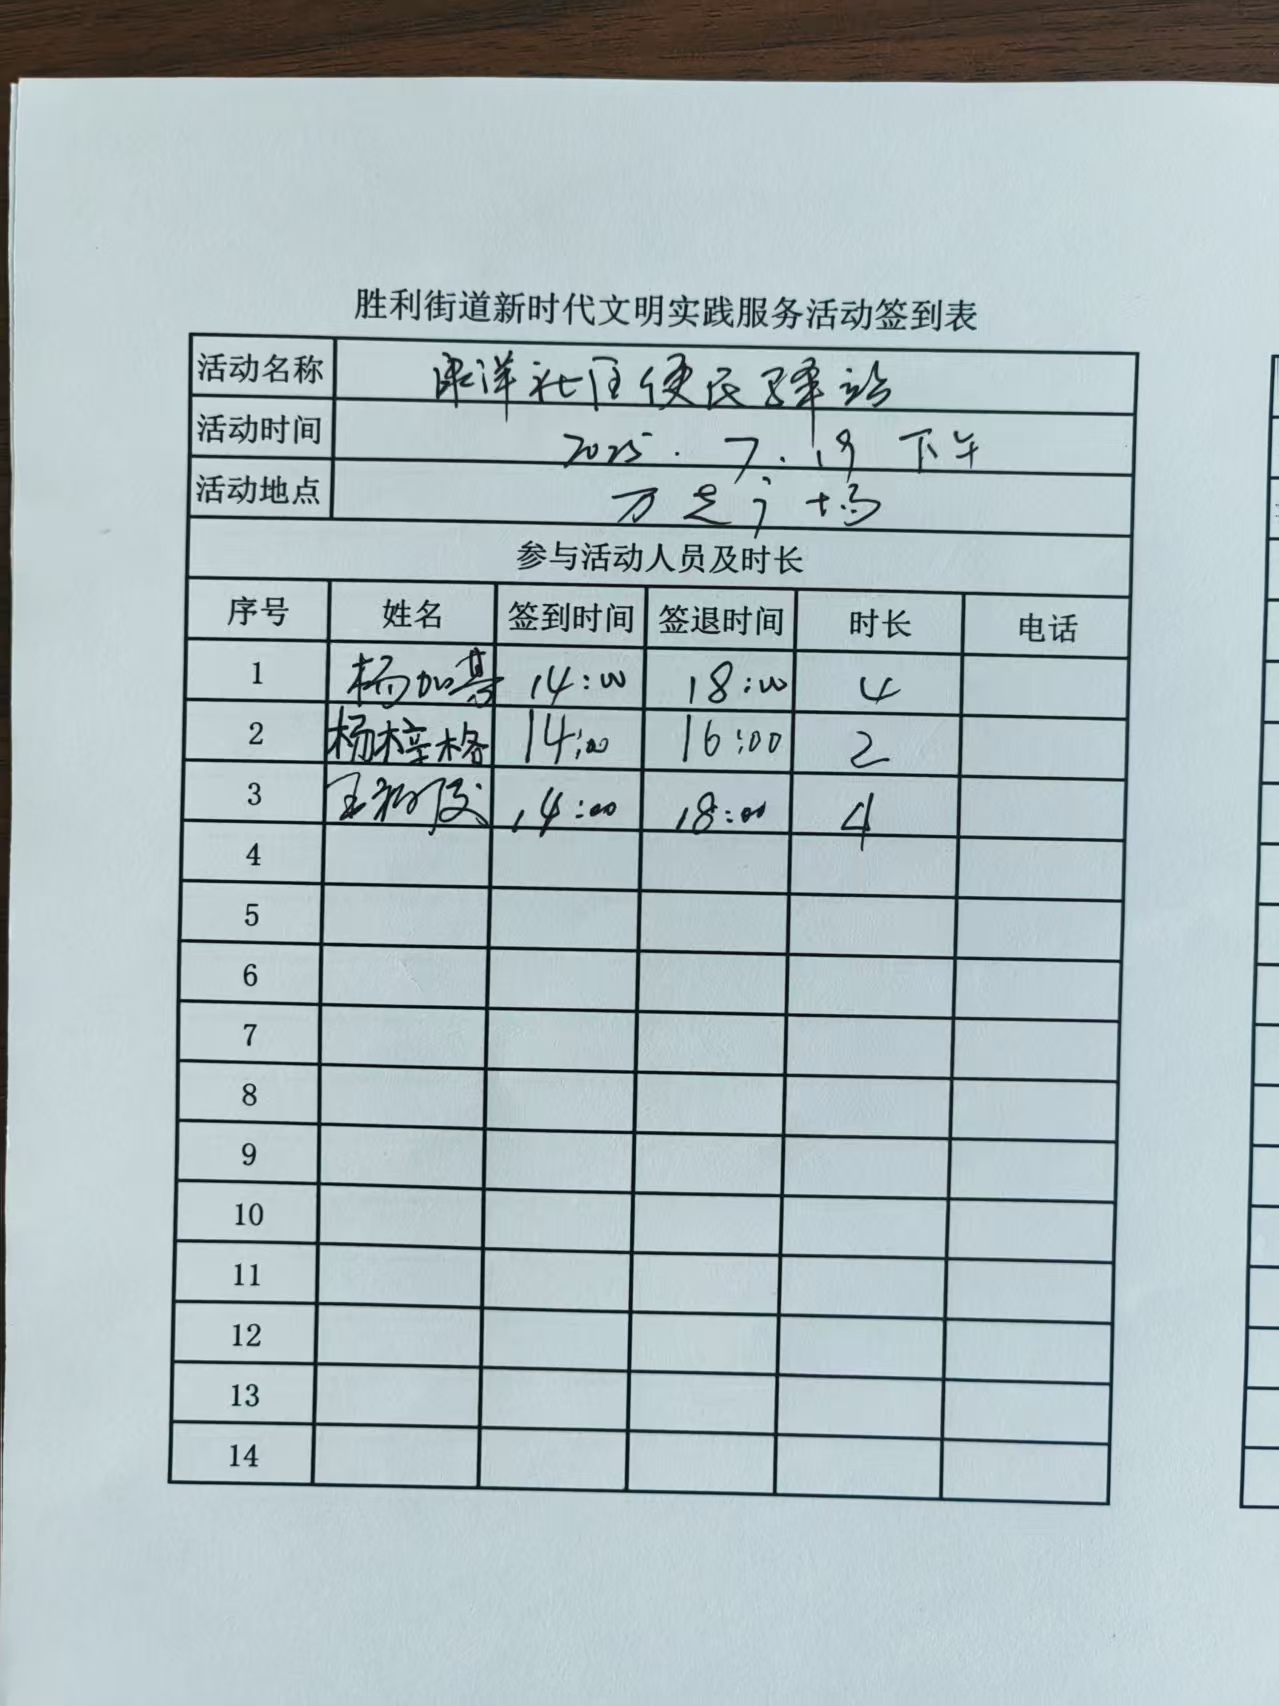 胜利街道新时代文明实践服务活动签到表
活动名称 洋社区便民驿站
活动时间 2025.7.19 下午
活动地点 万达广场
参与活动人员及时长
序号 姓名 签到时间 签退时间 时长 电话
1 杨加 14:00 18:00 4
2 杨梓格 14:00 16:00 2
3 王 14:00 18:00 4
4
5
6
7
8
9
10
11
12
13
14